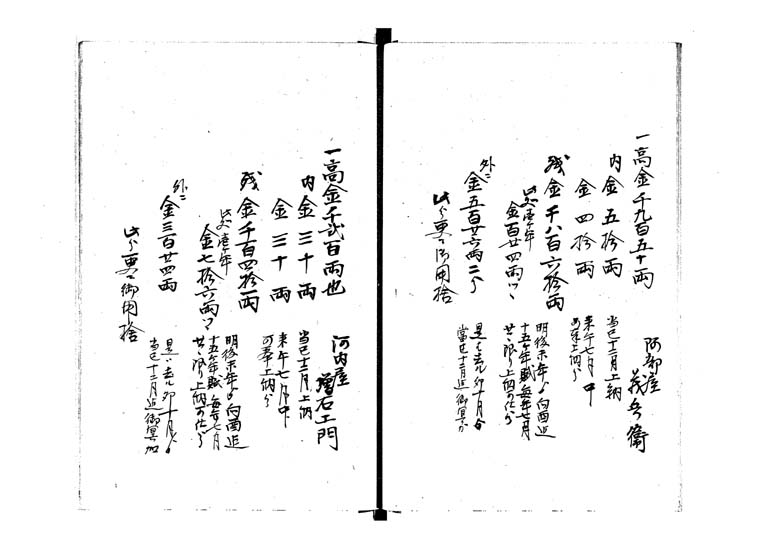 一高金千九百五十両
阿部屋
茂兵衛
内金五拾両
当巳十二月上納
金四拾両
来午七月中
上納
残金千八百六拾両
明後未年ゟ向酉迄
此処壱ケ年
金百廿四両ツヽ
十五ケ年賦毎年七月
廿日限り上納可仕
外ニ
金五百廿六両二分
是ハ去ル卯十月
當巳十二月迄御冥加
此分更ニ御用捨
一高金千弐百両也
河内屋
増右エ門
内金三十両
当巳十二月上納
金三十両
来午七月中
可奉上納
残金千百四拾両
明後未年ゟ向酉迄
此処壱ケ年
金七拾六両ツヽ
十五ケ年賦毎年七月
廿日限り上納可仕
外ニ
金三百廿四両
是ハ去ル卯十月ゟ
当巳十二月迄御冥加
此分更ニ御用捨